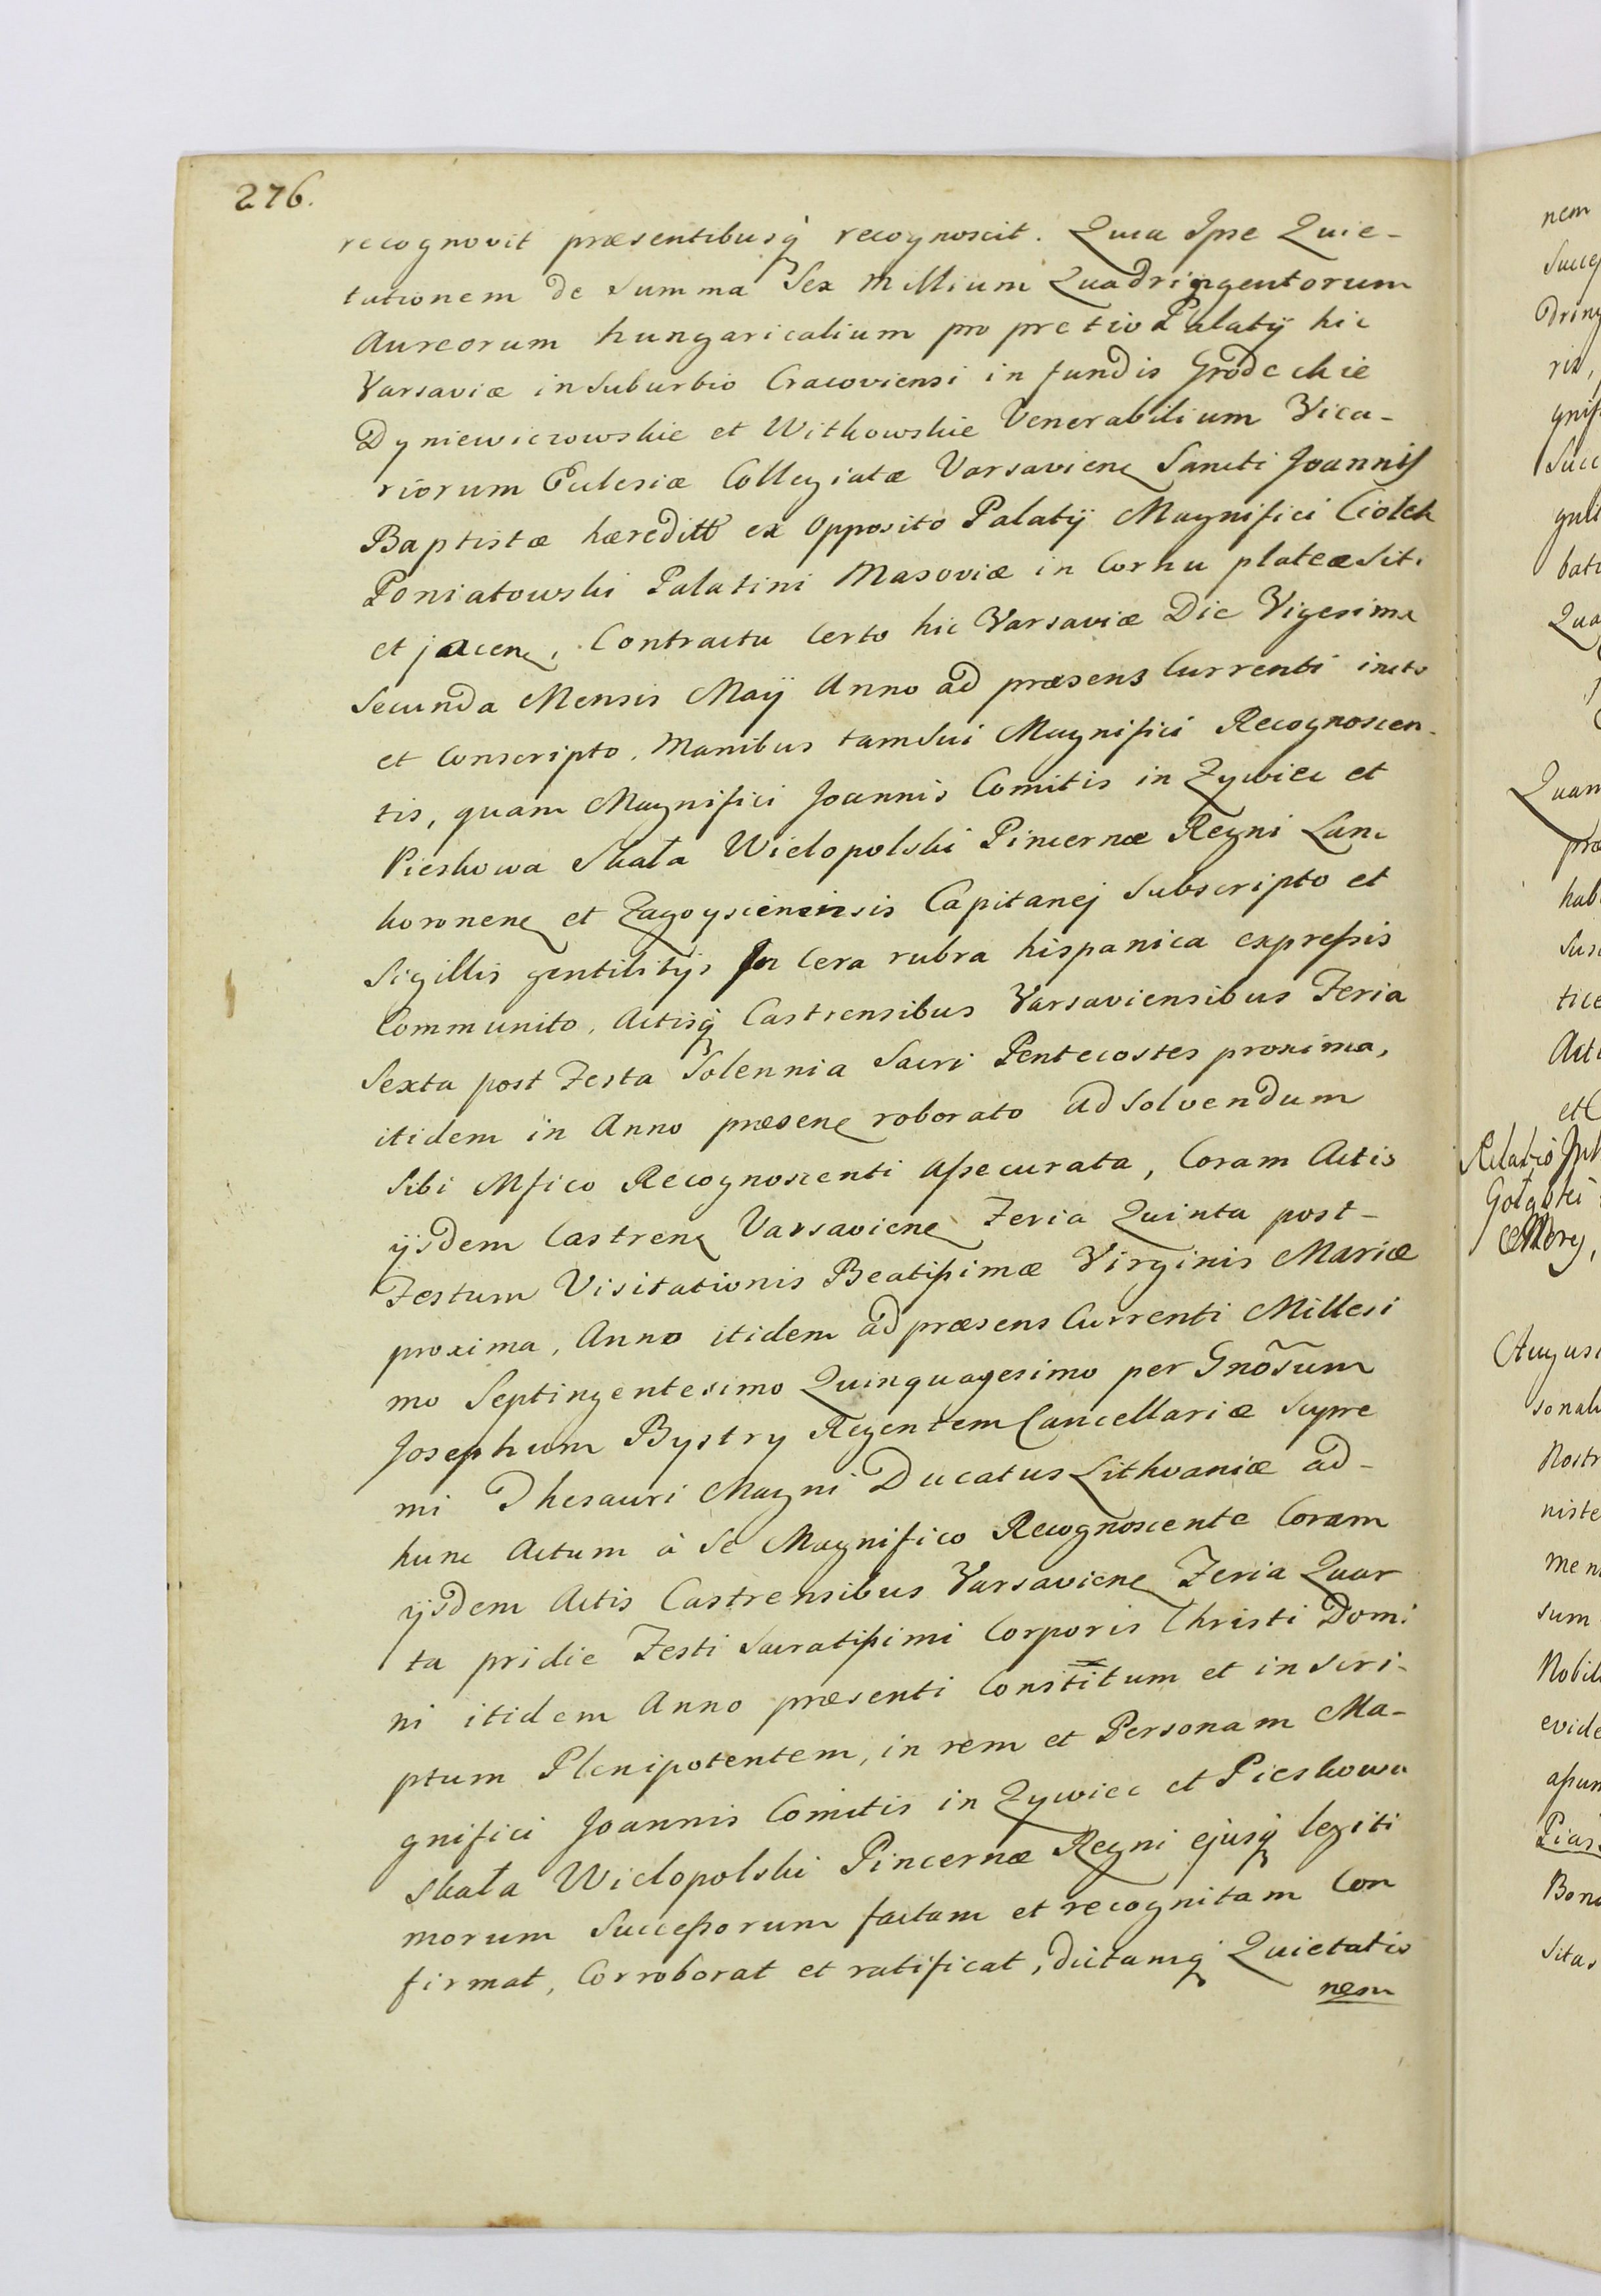 276.
recognovit præsentibusq́ recognoscit. Quia Ipse Quie-
tationem de Summa Sex Millium Quadringentorum
Aureorum hungaricalium pro pretio Palatÿ hic
Varsaviæ in Suburbio Cracoviensi in fundis Grodeckie
Dyniewiczowskie et Witkowskie Venerabilium Vica-
riorum Eclesiæ Collegiatæ Varsavienę Sancti Joannis
Baptistæ hæreditt ex Opposito Palatÿ Magnifici Ciolek
Poniatowski Palatini Masoviæ in Cornu plateæ Sit.
et jacenę, Contractu Certo hic Varsaviæ Die Vigesima
Secunda Mensis Maÿ Anno ad præsens Currenti inito
et Conscripto, Manibus tam Sui Magnifici Recognoscen-
tis, quam Magnifici Joannis Comitis in Zywiec et
Pieskowa Skała Wielopolski Pincernæ Regni Lanc
koronenę et Zagoysciensis Capitanej Subscripto et
Sigillis gentilitÿs In Cera rubra hispanica expressis
Communito, Actisq́ Castrensibus Varsaviensibus Feria
Sexta post Festa Solennia Sacri Pentecostes proxima,
itidem in Anno præsenę roborato ad Solvendum
Sibi Mfico Recognoscenti assecurata, Coram Actis
ÿsdem Castrenę Varsavienę Feria Quinta post-
Festum Visitationis Beatissimæ Virginis Mariæ
proxima, Anno itidem ad præsens Currenti Millesi
mo Septingentesimo Quinquagesimo per Gnõsum
Josephum Bystry Regentem Cancellariæ Supre
mi Thesauri Magni Ducatus Lithvaniæ ad-
hunc Actum à Se Magnifico Recognoscente Coram
ÿsdem Actis Castrensibus Varsavienę Feria Quar
ta pridie Festi Sacratissimi Corporis Christi Domi
ni itidem Anno præsenti Constitutum et inscri-
ptum Plenipotentem, in rem et Personam Ma-
gnifici Joannis Comitis in Zywiec et Pieskowa
Skała Wielopolski Pincernæ Regni ejusq́ legiti
morum Successorum factam et recognitam Con
firmat, Corroborat et ratificat, dictamq́ Quietatio
nem